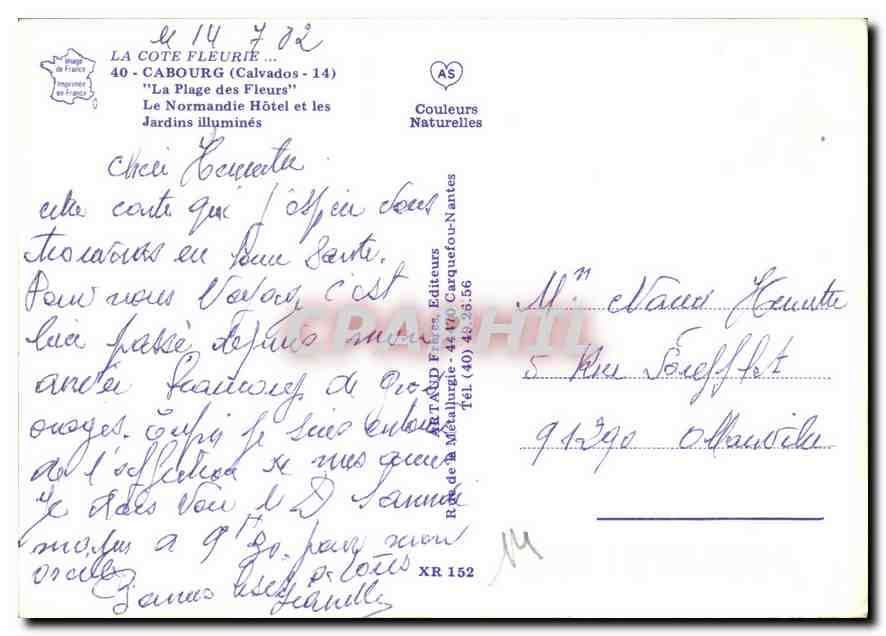 M 14 7 82
Image
de France
Imprimée
en France
LA COTE FLEURIE ...
40 - CABOURG (Calvados - 14)
"La Plage des Fleurs"
Le Normandie Hôtel et les
Jardins illuminés
AS
Couleurs
Naturelles
chère Henriette
cette carte qui j'espère vous
trouvera en bonne santé.
Pour nous Voyage c'est
bien passé depuis mon
arrivée beaucoup de gros
orages. Enfin je suis entouré
de l'affection de mes amis
Je dois voir le Dr Samedi
matin a 9H30 pour mon
oreille
Bonnes bises a tous
ARTAUD Frères, Editeurs
Rue de la Métallurgie - 44470 Carquefou-Nantes
Tél. (40) 49.26.56
CPAPHIL
Mn Henriette
5 Rue
91290
14
XR 152